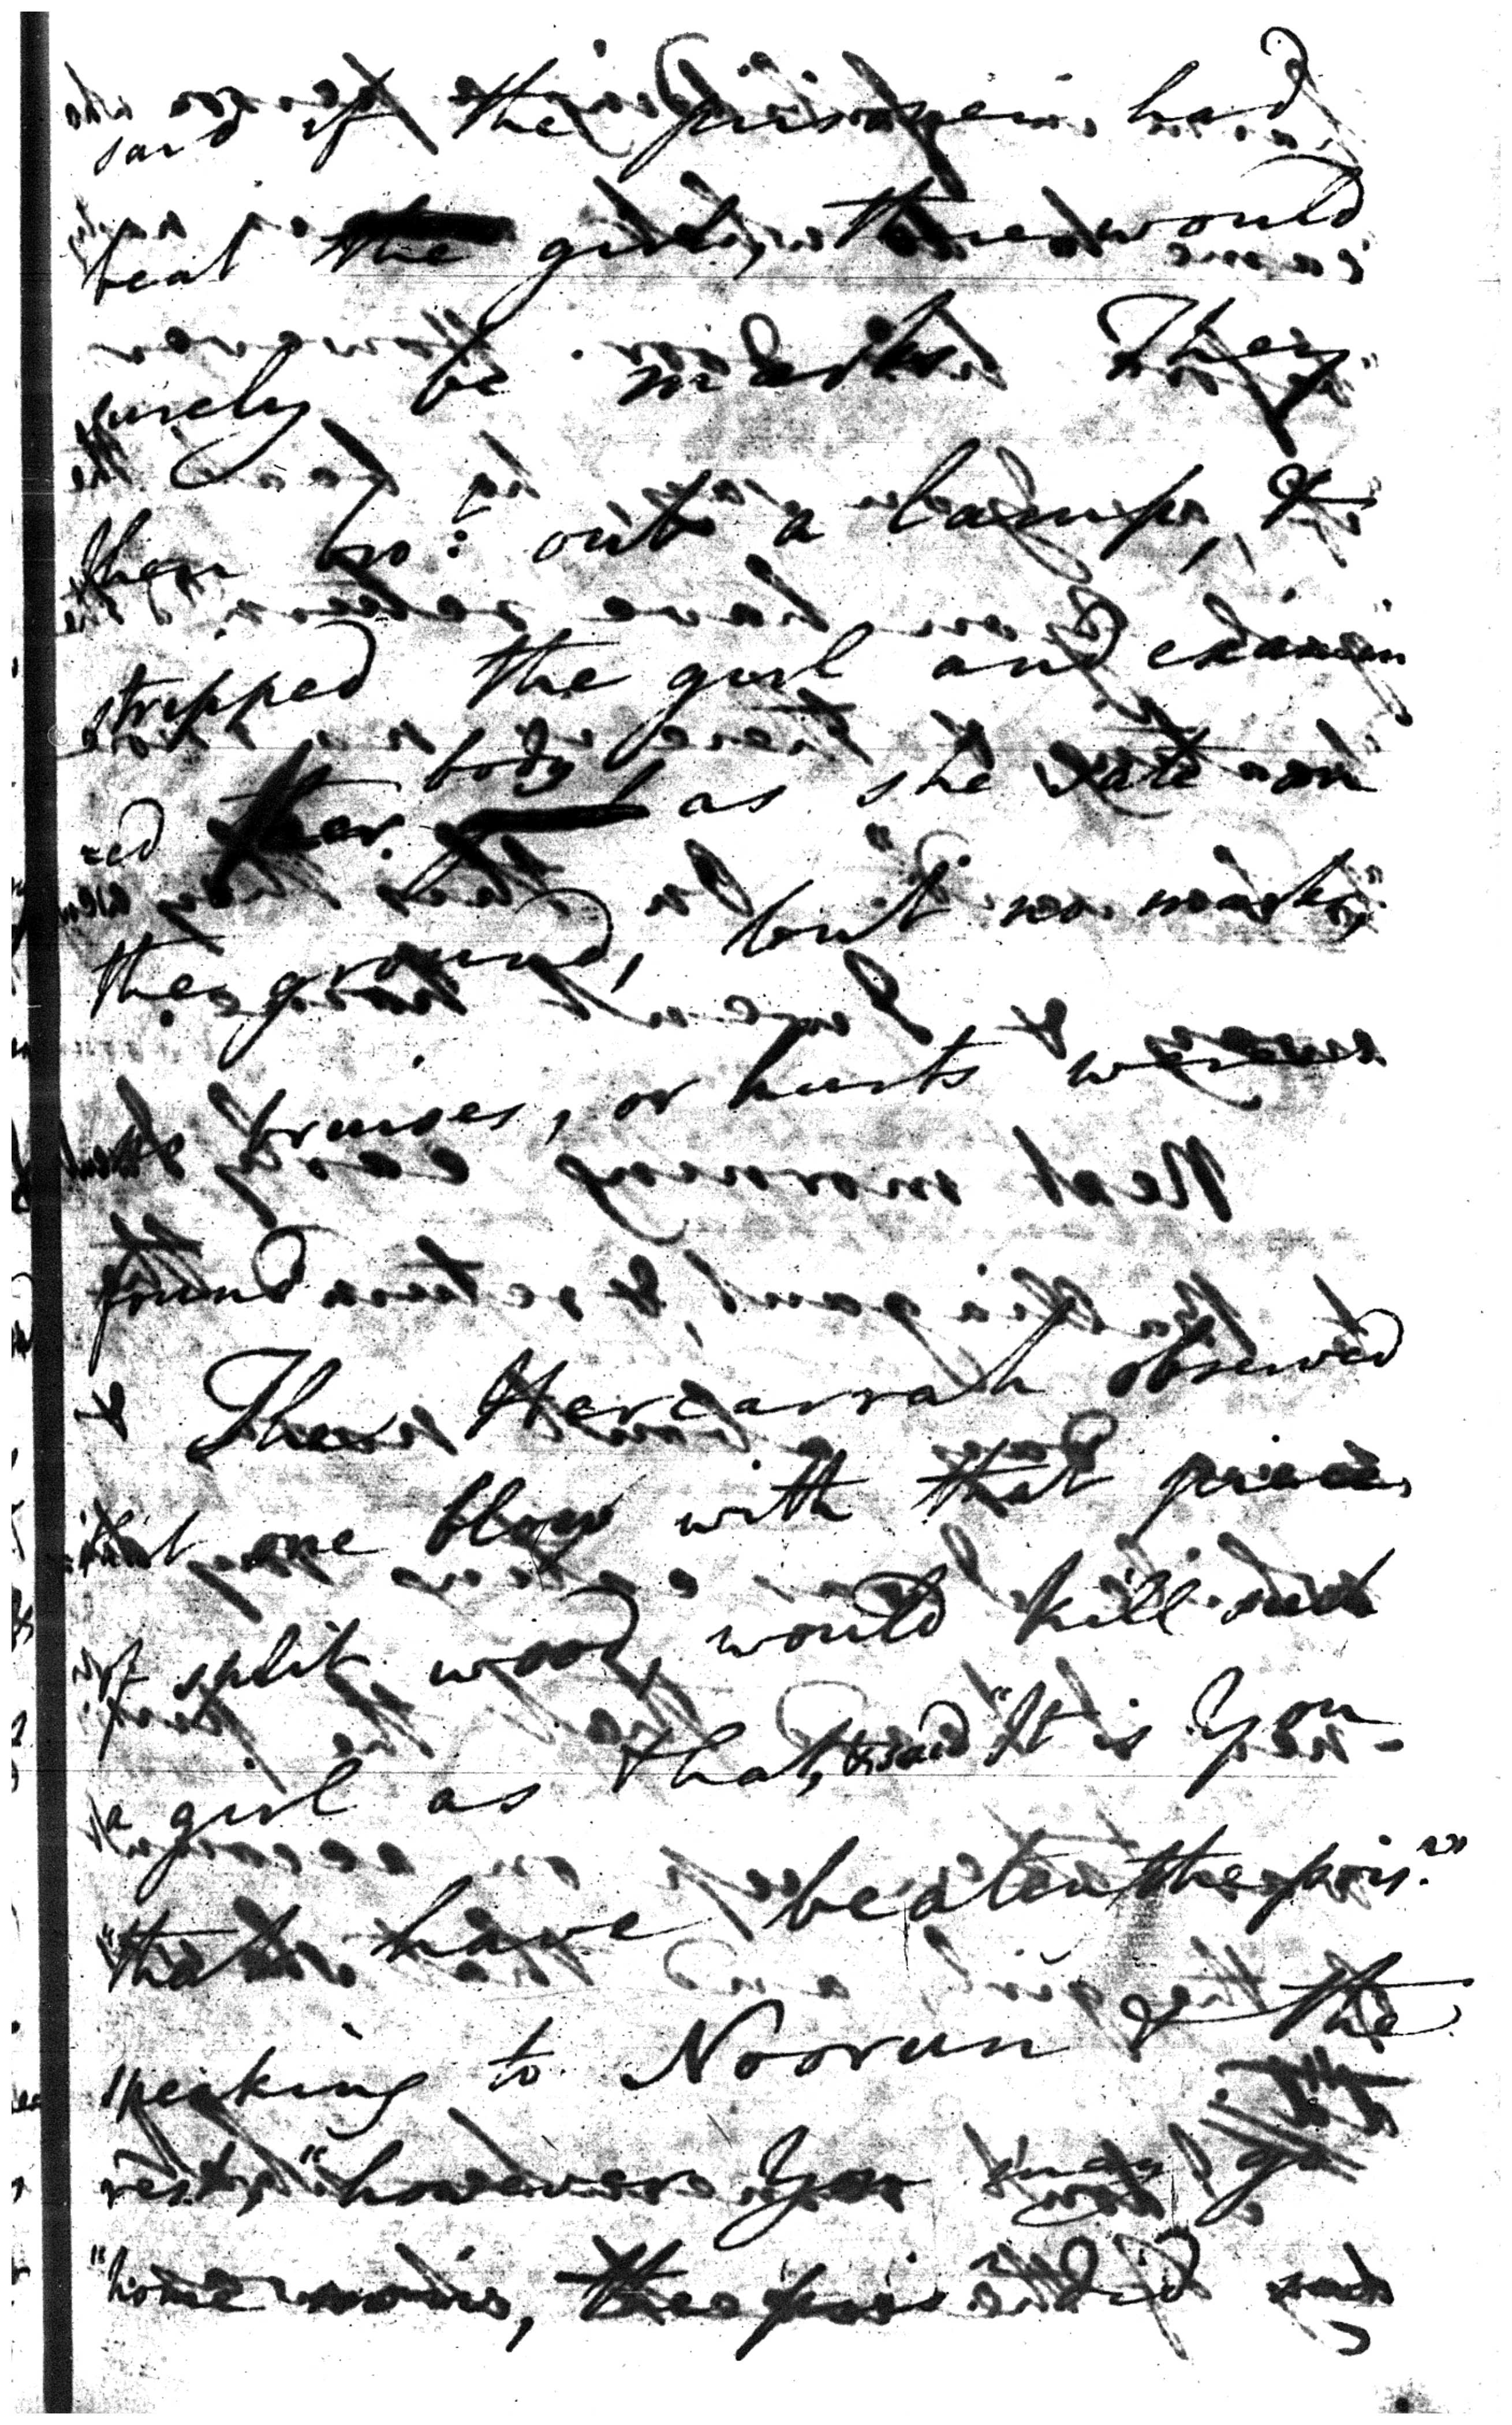 said if the prisoner had
beat the girl, there would
surely be marks. They
then bro:t out a lamp, &
stripped the girl and exami
=ed her body as she sate on
the ground, but no marks,
bruises, or hurts were
found
& The Hercarrah observed
that one blow with that piece
of split wood, would kill such
a girl as that, & said "It is you
"that have beaten the pris.r"
speaking to Noorun & the
rest, "however you may go
"home now, the pris